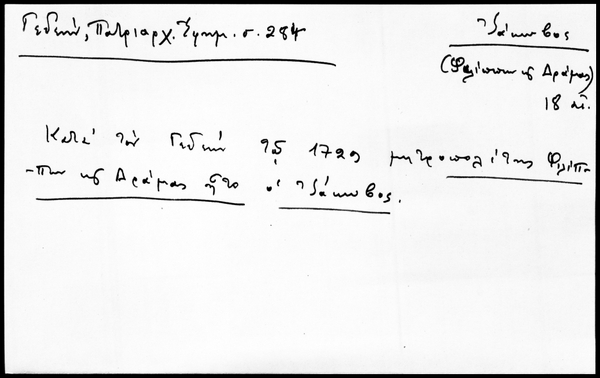 Γεδεών, Πατριαρχ. Ἐφημ. σ. 284
Ἰάκωβος
(Φιλίππων κ Δράμας)
18 αἰ.
Κατά τόν Γεδεών τῷ 1729 μητροπολίτης Φιλίπ-
-πων κ Δράμας ἦτο ὁ Ἰάκωβος.